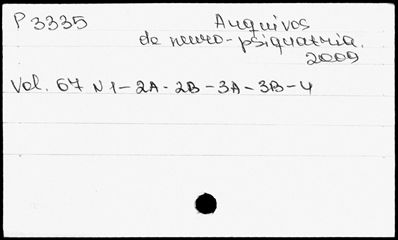 P 3335 Arquivos
de neuro-psiquiatria.
2009
Vol. 67 N 1-2A-2B-3A-3B-4